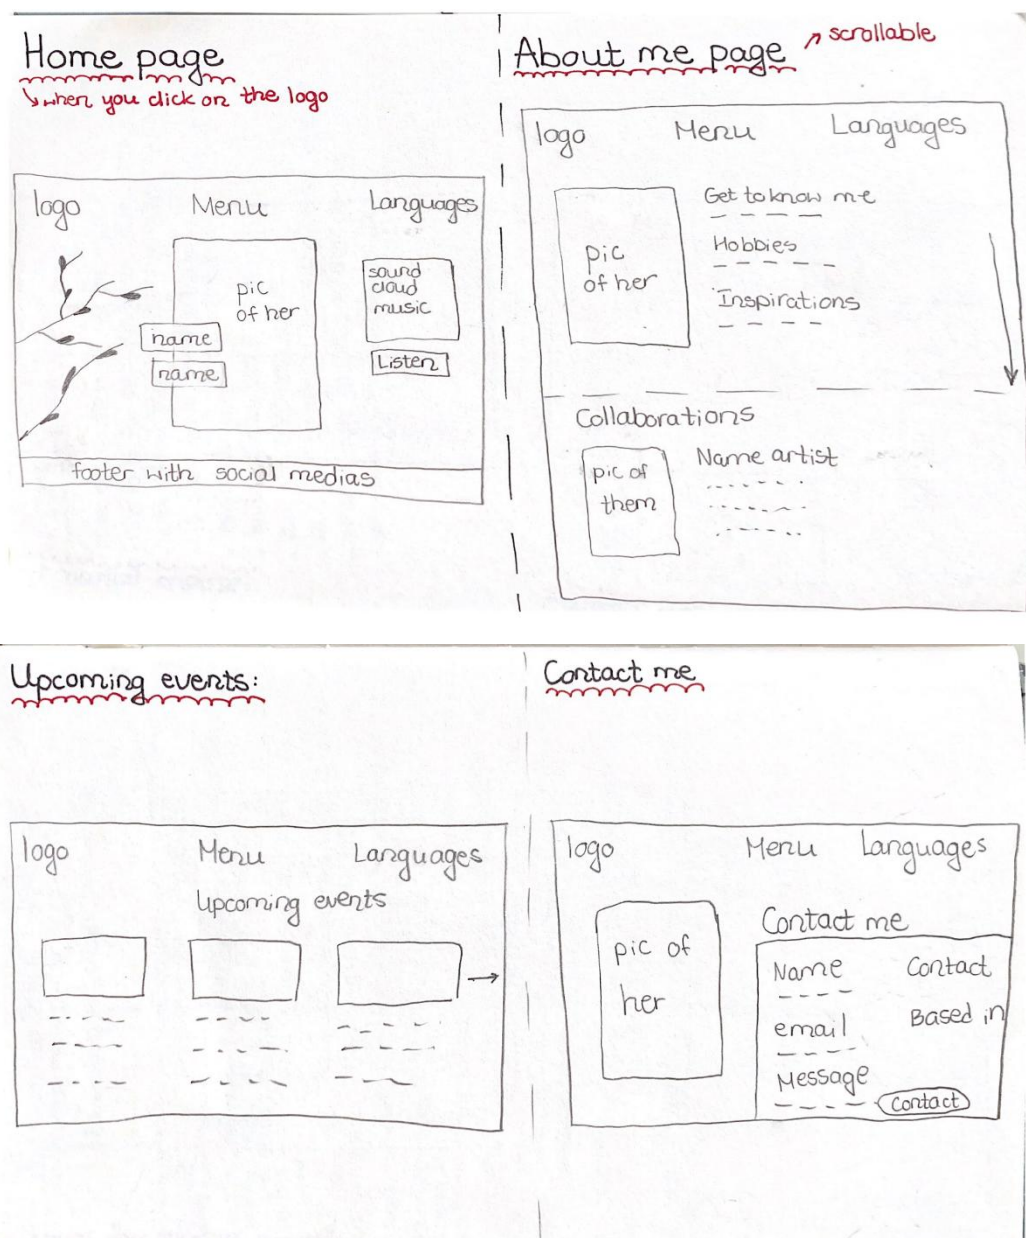 Home page
when you click on the logo
logo Menu Languages
pic
of her
sound
cloud
music
name
name
Listen
footer with social medias
About me page
scrollable
logo Menu Languages
Get to know me
Hobbies
Inspirations
pic
of her
Collaborations
pic of
them
Name artist
Upcoming events:
logo Menu Languages
Upcoming events
Contact me
logo Menu Languages
pic of
her
Contact me
Name Contact
Based in
email
Message
Contact